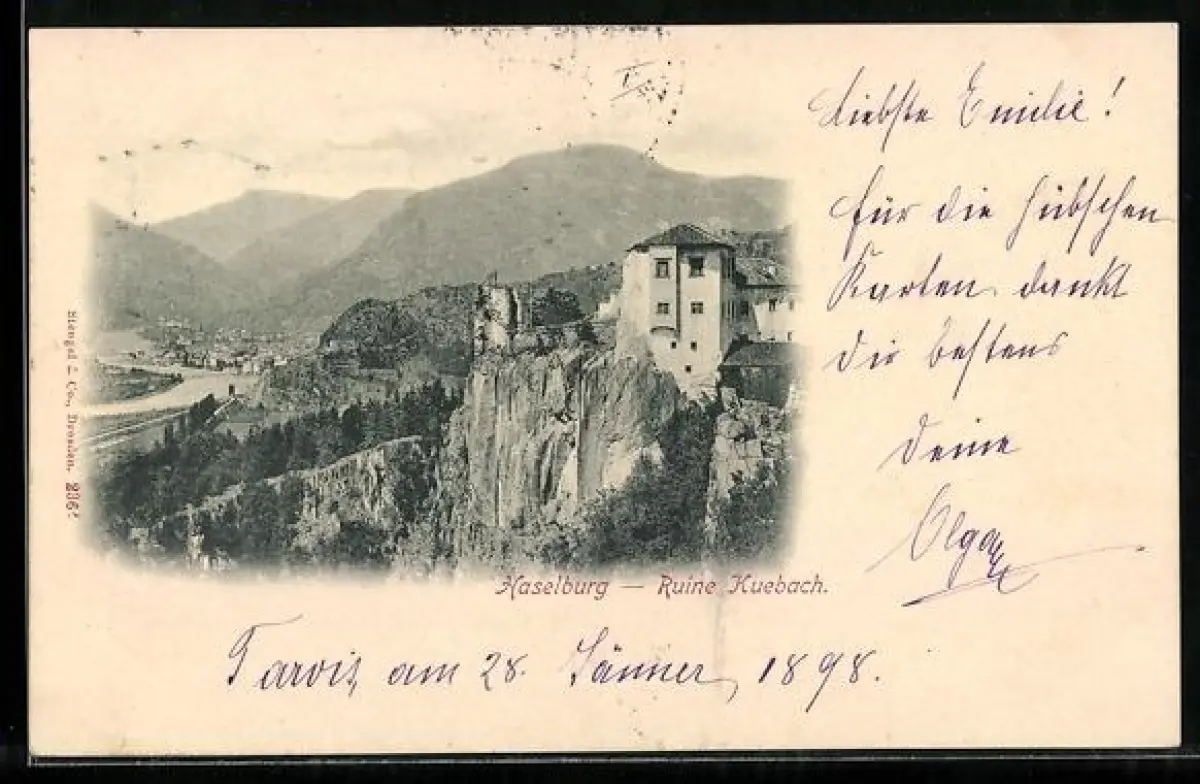 Liebste Emilie!
für die hübschen
Karten dankt
Dir bestens
Deine
Olga
Haselburg — Ruine Kuebach.
Tarvis am 28. Jänner, 1898.
Stengel & Co., Dresden.